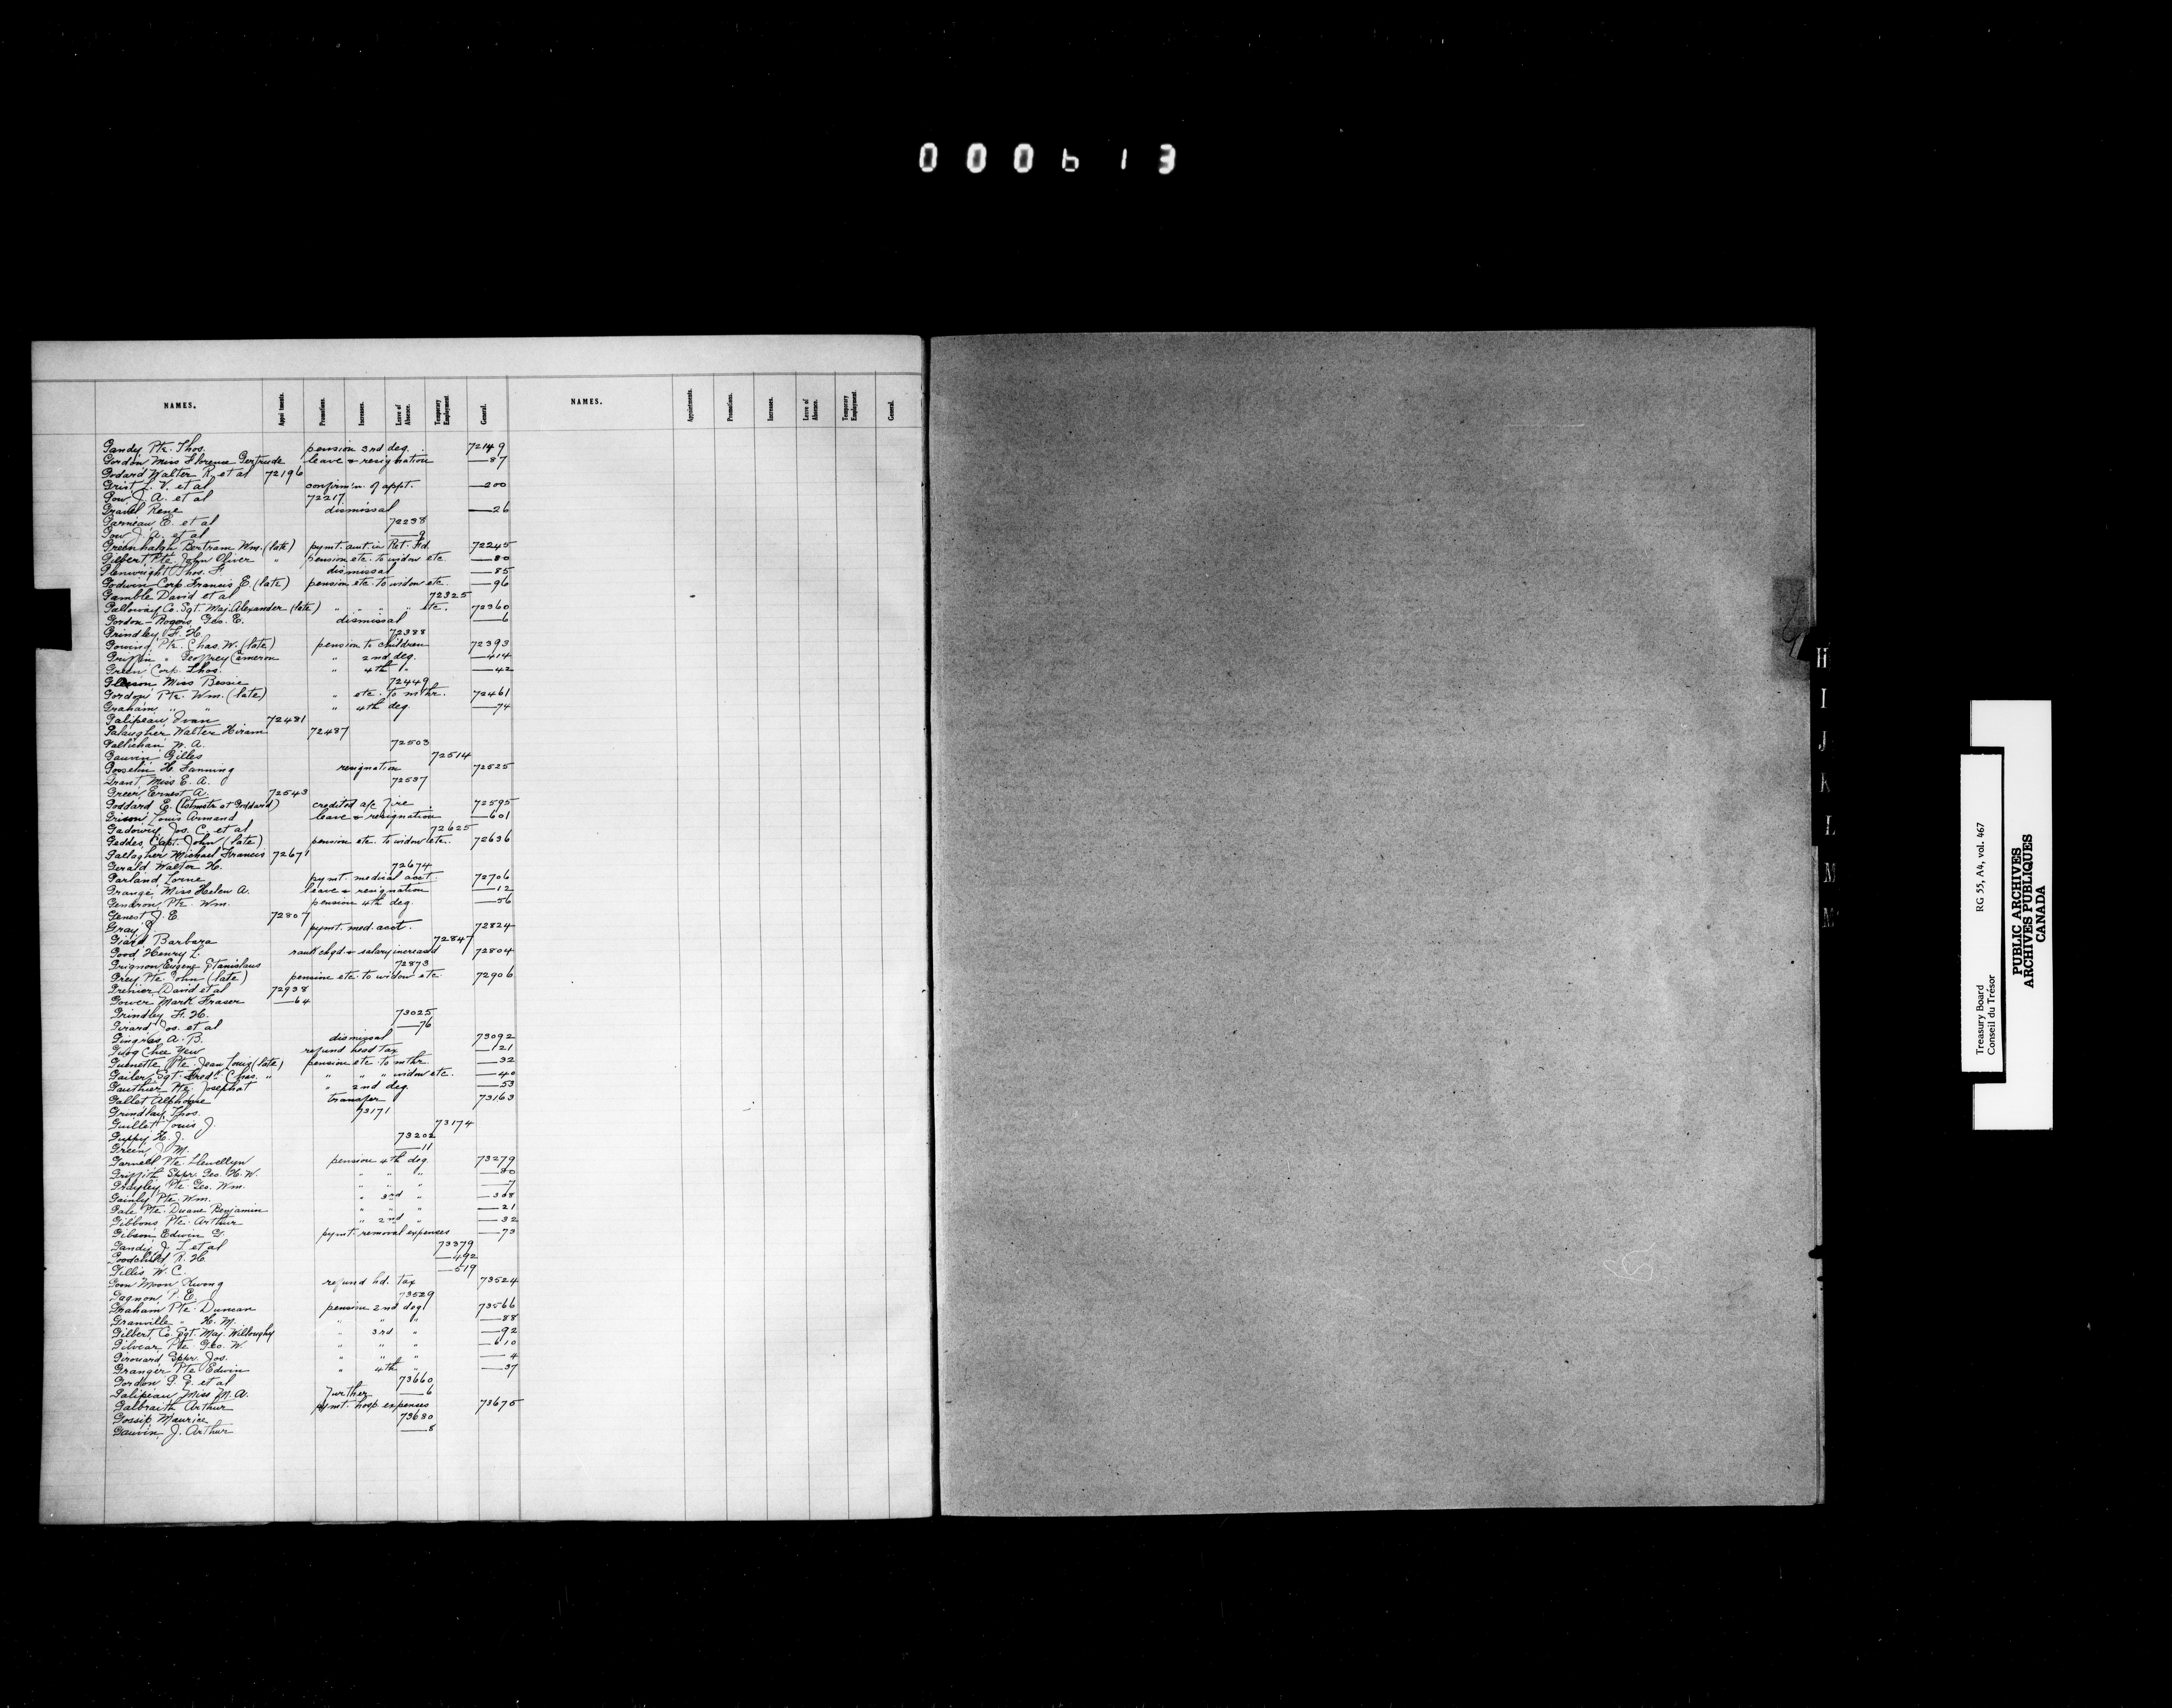 000613
NAMES. Appointments. Promotions. Increases. Leave of Absence. Temporary Employment. General. NAMES. Appointments. Promotions. Increases. Leave of Absence. Temporary Employment. General.
Gandy Pte. Thos. pension 3rd deg. 72149
Gordon Miss Florence Gertrude leave & resignation —87
Godard Walter R. et al 72196
Grist L. V. et al confirm'n. of appt. —200
Gow J. A. et al 72217
Gravel Rene dismissal —26
Garneau E. et al 72238
Gow J. A. et al —9
Greenhalgh Bertram Wm. (late) pymt. amt. in Ret. Fd. 72245
Gilbert Pte. John Oliver " pension etc. to widow etc —80
Glenwright Thos. F. dismissal —85
Godwin Corp. Francis E. (late) pension etc. to widow etc. —96
Gamble David et al 72325
Galloway Co. Sgt. Maj. Alexander (late) " " " " etc. 72360
Gordon-Rogois Geo. E. dismissal —6
Grindley F. H. 72388
Gowing Pte. Chas. W. (late) pension to children 72393
Griffin " Geoffrey Cameron " 2nd deg. —414
Green Corp. Thos. " 4th " —42
Gleeson Miss Bessie 72449
Gordon Pte. Wm. (late) " etc. to mthr. 72461
Graham " " " 4th deg —74
Galipeau Ivan 72481
Galaugher Walter Hiram 72487
Gallichan W. A. 72503
Gauvin Gilles 72514
Gosselin H. Fanning resignation 72525
Grant Miss E. A. 72537
Greer Ernest A. 72543
Goddard E. (Pstmstr at Goddard) credited a/c fire 72595
Grison Louis Armand leave & resignation —601
Gadowry Jos. C. et al 72625
Geddes Capt. John (late) pension etc. to widow etc. 72636
Gallagher Michael Francis 72671
Gerald Walter H. 72674
Garland Lorne pymt. medical acct. 72706
Grange Miss Helen A. leave & resignation —12
Gendron Pte. Wm. pension 4th deg. —56
Genest J. E. 72807
Gray J. pymt. med. acct. 72824
Giard Barbara 72847
Good Henry L. rank chgd. & salary increased 72804
Grignon Eugene Stanislaus 72873
Grey Pte. John (late) pension etc. to widow etc 72906
Grenier David et al 72938
Gower Mark Fraser —64
Grindley F. H. 73025
Girard Jos. et al —76
Gingras A. B. dismissal 73092
Gwog Chee Yew refund head tax —121
Guenette Pte. Jean Louis (late) pension etc. to mthr. —32
Gailer Sgt. Fredk. Chas. " " " " widow etc. —40
Gauthier Pte. Josephat " 2nd deg. —53
Gallet Alphonse transfer 73163
Grindlay Thos. 73171
Guillet Louis J. 73174
Guppy H. J. 73202
Green J. M. —11
Garnell Pte. Llewellyn pension 4th deg 73279
Griffith Sppr. Geo. H. W. " " " —80
Grayley Pte. Geo. Wm. " " " —7
Gainly Pte. Wm. " 3rd " —308
Gale Pte. Duane Benjamin " " " —21
Gibbons Pte. Arthur " 2nd " —32
Gibson Edwin G. pymt. removal expenses —73
Gandy J. L. et al 73379
Goodchild R. H. —492
Gillis W. C. —519
Goon Moon Kwong refund hd. tax 73524
Gagnon P. E. 73529
Graham Pte. Duncan pension 2nd deg 73566
Granville " H. M. " " " —88
Gilbert Co. Sgt. Maj. Willoughby " 3rd " —92
Gilvear Pte. Geo. W. " " " —610
Girouard Sppr. Jos. " " " —4
Granger Pte Edwin " 4th " —37
Gordon P. G. et al 73660
Galipeau Miss M. A. Further —6
Galbraith Arthur pymt. hosp expenses 73675
Gossip Maurice 73680
Gauvin J. Arthur —8
H
I
J
K
L
M
Treasury Board RG 55, A4, vol. 467
Conseil du Trésor
PUBLIC ARCHIVES
ARCHIVES PUBLIQUES
CANADA